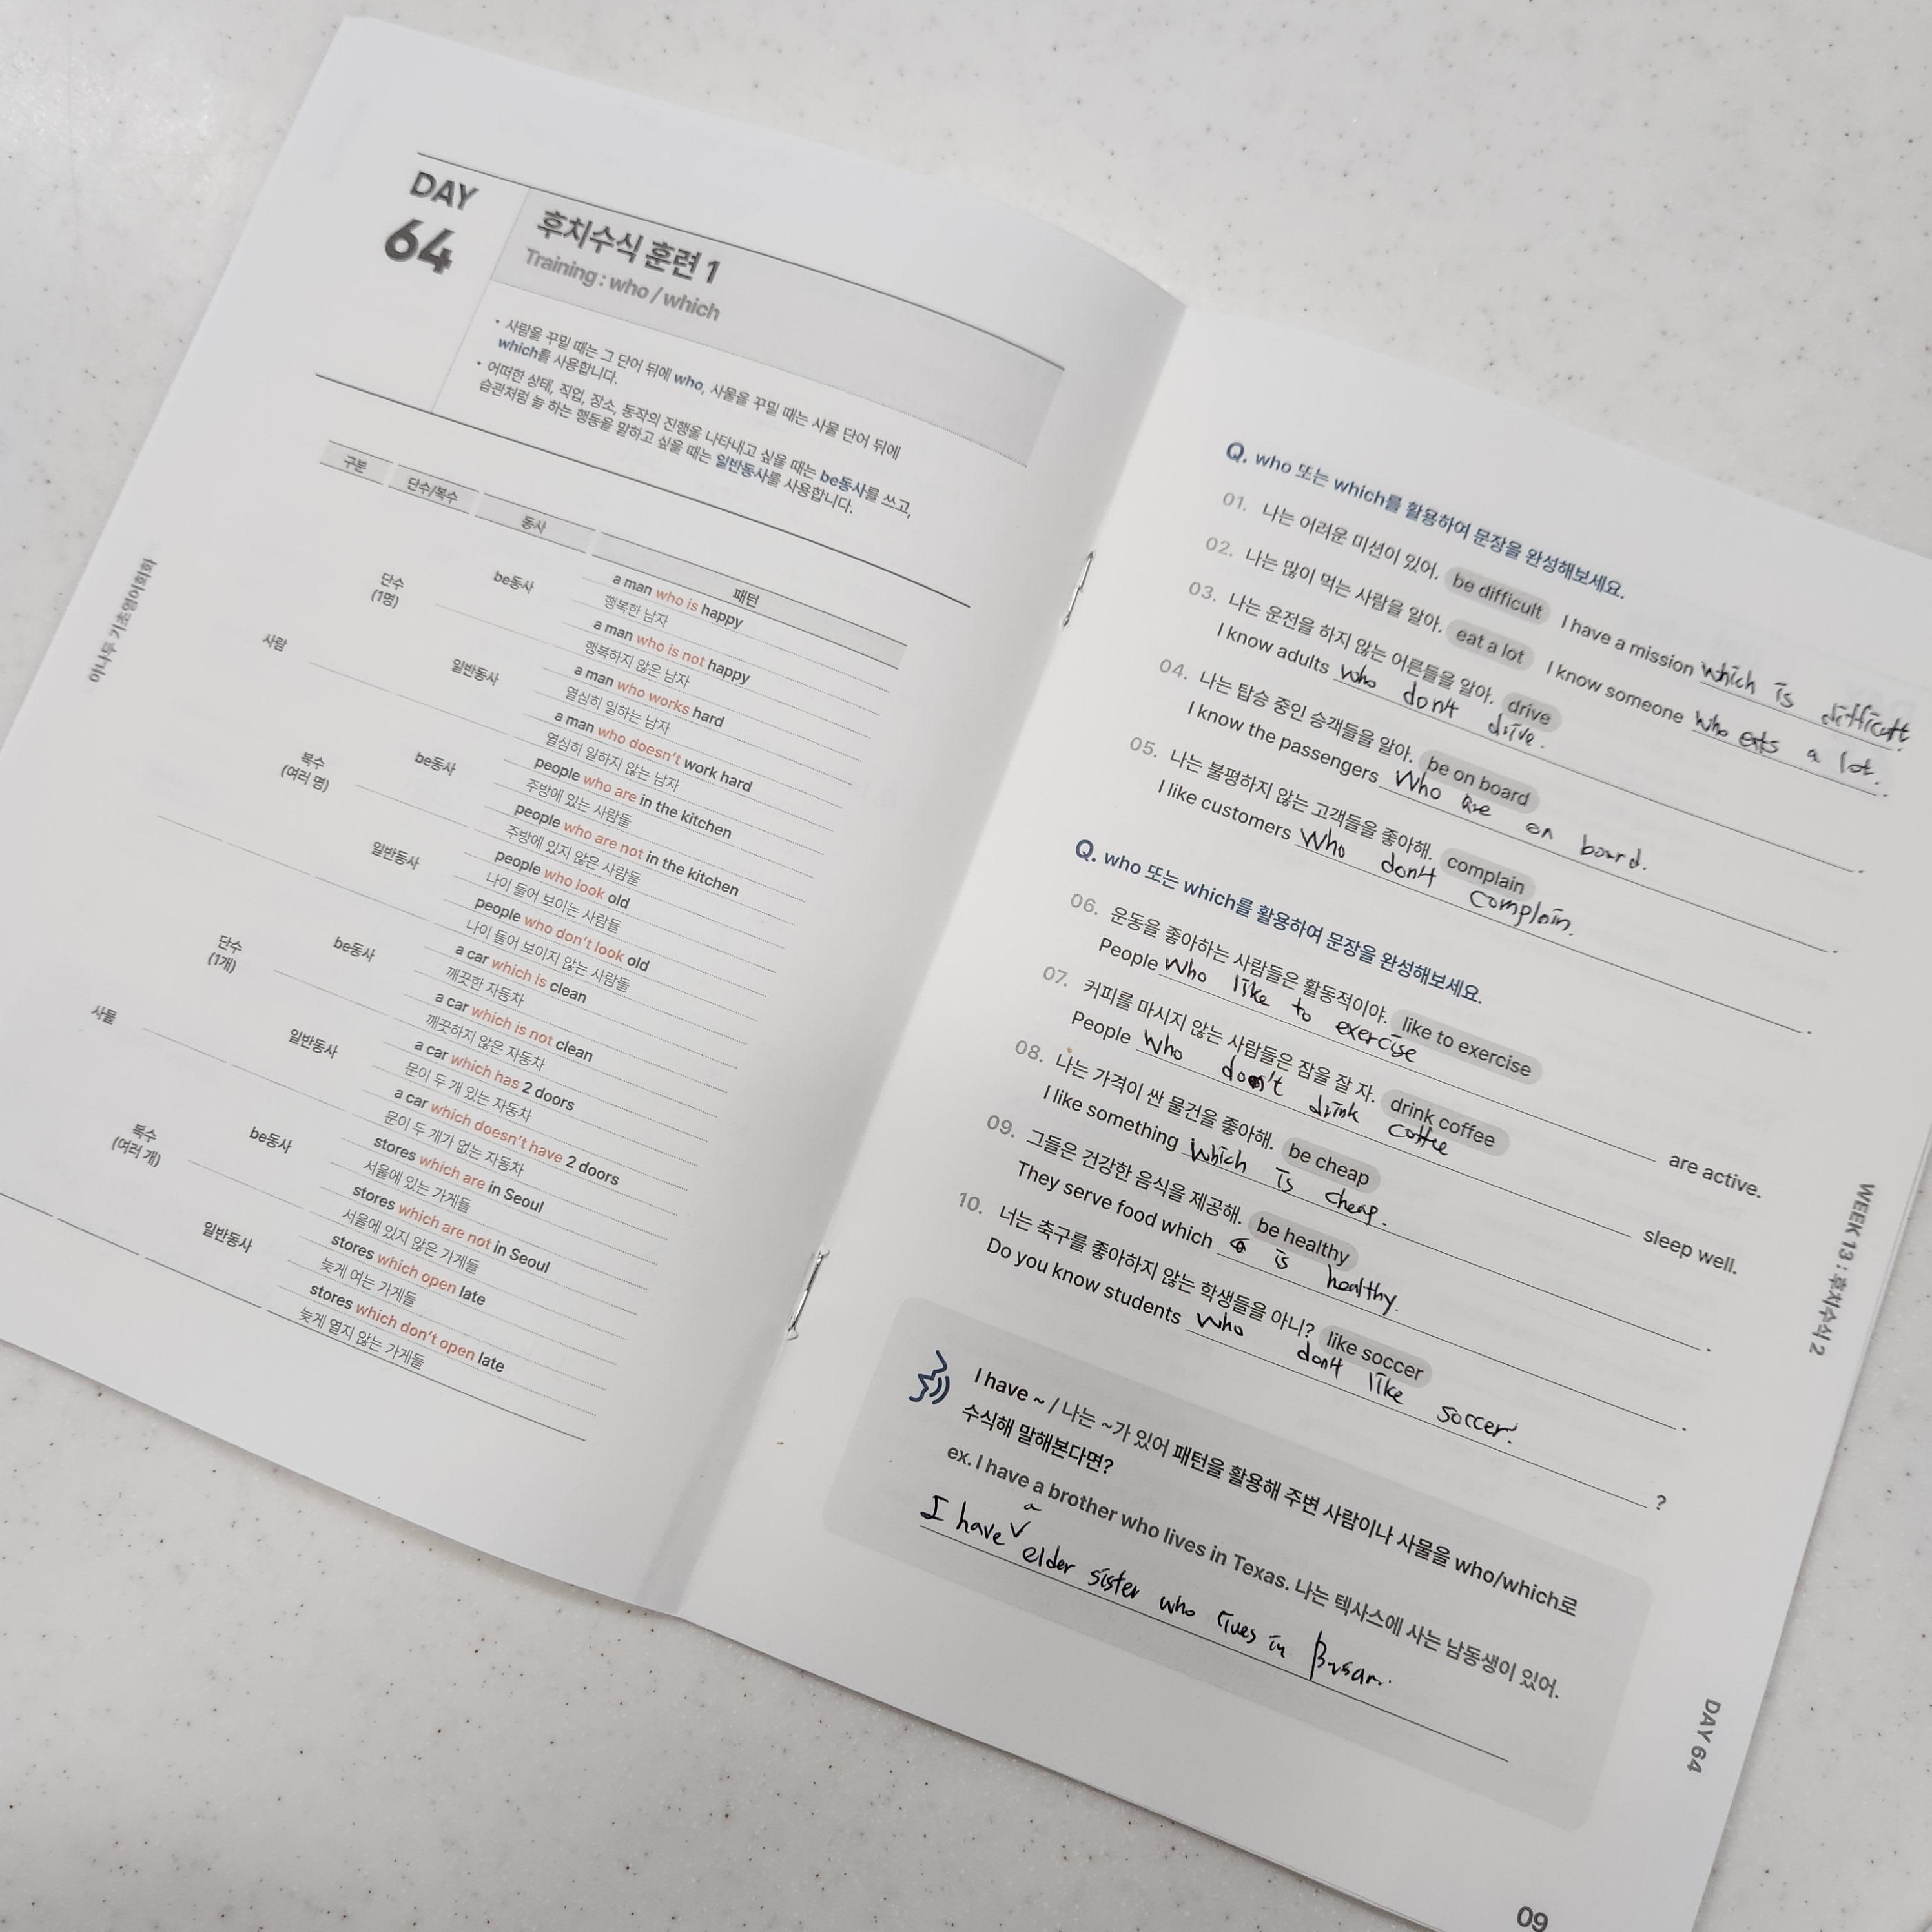 DAY
64
후치수식 훈련 1
Training : who / which
• 사람을 꾸밀 때는 그 단어 뒤에 who, 사물을 꾸밀 때는 사물 단어 뒤에
which를 사용합니다.
• 어떠한 상태, 직업, 장소, 동작의 진행을 나타내고 싶을 때는 be동사를 쓰고,
습관처럼 늘 하는 행동을 말하고 싶을 때는 일반동사를 사용합니다.
구분 단수/복수 동사 패턴
사람
단수
(1명)
be동사
a man who is happy
행복한 남자
a man who is not happy
행복하지 않은 남자
일반동사
a man who works hard
열심히 일하는 남자
a man who doesn't work hard
열심히 일하지 않는 남자
복수
(여러 명)
be동사
people who are in the kitchen
주방에 있는 사람들
people who are not in the kitchen
주방에 있지 않은 사람들
일반동사
people who look old
나이 들어 보이는 사람들
people who don't look old
나이 들어 보이지 않는 사람들
사물
단수
(1개)
be동사
a car which is clean
깨끗한 자동차
a car which is not clean
깨끗하지 않은 자동차
일반동사
a car which has 2 doors
문이 두 개 있는 자동차
a car which doesn't have 2 doors
문이 두 개가 없는 자동차
복수
(여러 개)
be동사
stores which are in Seoul
서울에 있는 가게들
stores which are not in Seoul
서울에 있지 않은 가게들
일반동사
stores which open late
늦게 여는 가게들
stores which don't open late
늦게 열지 않는 가게들
야나두 기초영어회화
Q. who 또는 which를 활용하여 문장을 완성해보세요.
01. 나는 어려운 미션이 있어. be difficult I have a mission which is difficult.
02. 나는 많이 먹는 사람을 알아. eat a lot I know someone who eats a lot.
03. 나는 운전을 하지 않는 어른들을 알아. drive
I know adults who don't drive.
04. 나는 탑승 중인 승객들을 알아. be on board
I know the passengers who are on board.
05. 나는 불평하지 않는 고객들을 좋아해. complain
I like customers who don't complain.
Q. who 또는 which를 활용하여 문장을 완성해보세요.
06. 운동을 좋아하는 사람들은 활동적이야. like to exercise
People who like to exercise are active.
07. 커피를 마시지 않는 사람들은 잠을 잘 자. drink coffee
People who don't drink coffee sleep well.
08. 나는 가격이 싼 물건을 좋아해. be cheap
I like something which is cheap.
09. 그들은 건강한 음식을 제공해. be healthy
They serve food which is healthy.
10. 너는 축구를 좋아하지 않는 학생들을 아니? like soccer
Do you know students who don't like soccer. ?
I have ~ / 나는 ~가 있어 패턴을 활용해 주변 사람이나 사물을 who/which로
수식해 말해본다면?
ex. I have a brother who lives in Texas. 나는 텍사스에 사는 남동생이 있어.
I have a elder sister who lives in Busan.
WEEK 13 : 후치수식 2
DAY 64
09